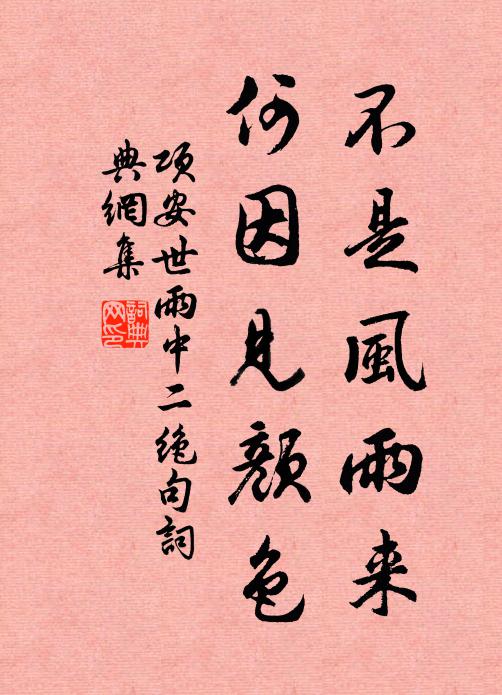 不是風雨来
何因見顔色
項安世雨中二绝句詞
典網集
詞典网印